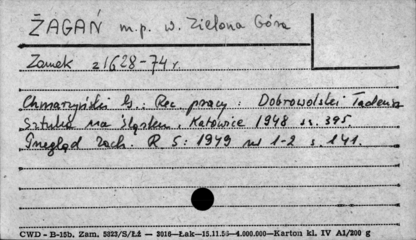 ŻAGAŃ m.p. w. Zielona Góra
Zamek z 1628-74 r.
Chmarzyński G.: Rec. pracy: Dobrowolski Tadeusz
Sztuka na Śląsku, Katowice 1948 s. 395
Przegląd Zach. R 5: 1949 nr 1-2 s. 141.
CWD - B-15b. Zam. 5823/S/Łź — 3016—Łak—15.11.56—4.000.000—Karton kl. IV A1/200 g